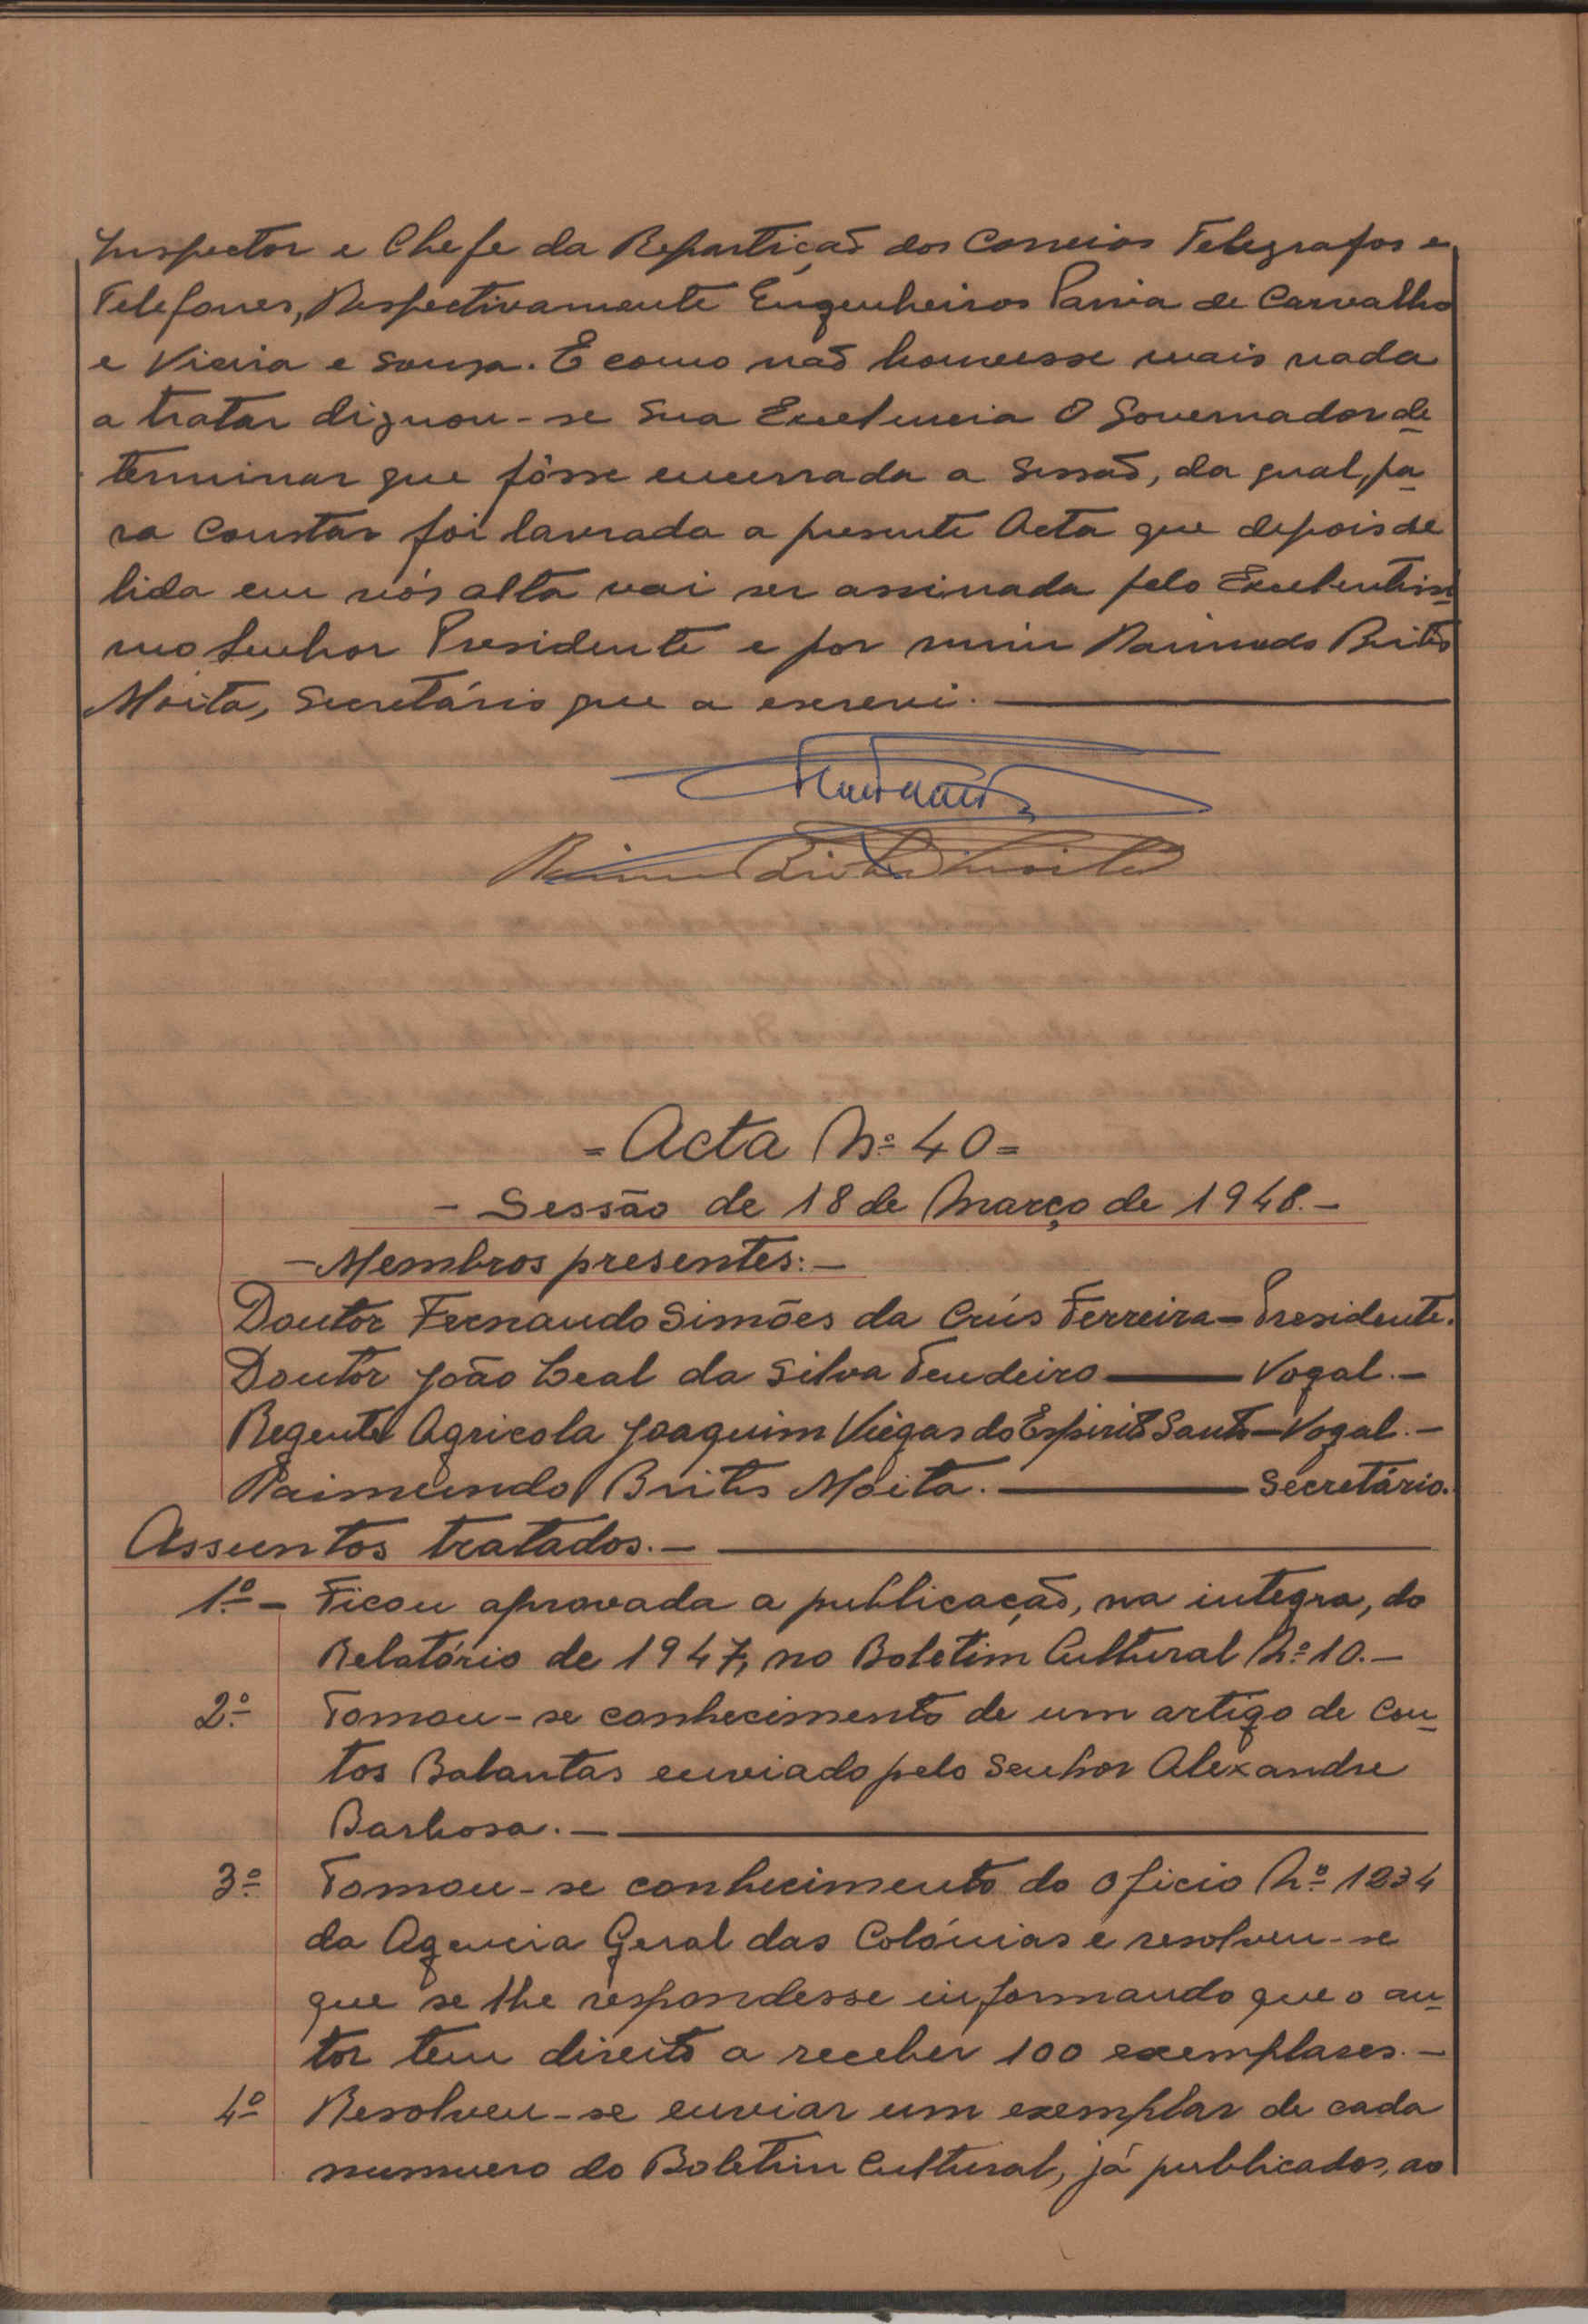 Inspector e Chefe da Repartição dos Correios Telegrafos e
Telefones, Respectivamente Engenheiros Paiva de Carvalho
e Vieira e Sousa. E como não houvesse mais nada
a tratar dignou-se Sua Excelencia O Governador de
terminar que fôsse encerrada a Sessão, da qual, pa
ra Constar foi lavrada a presente Acta que depois de
lida em vós alta vai ser assinada pelo Excelentissi
mo Senhor Presidente e por mim Raimundo Brites
Moita, Secretário que a escrevi.
= Acta Nº 40 =
- Sessão de 18 de Março de 1948. -
- Membros presentes: -
Doutor Fernando Simões da Crús Ferreira - Presidente.
Doutor João Leal da Silva Tendeiro — Vogal. -
Regente Agricola Joaquim Viegas do Espirito Santo - Vogal. -
Raimundo Brites Moita. — Secretário.
Assuntos tratados. -
1º - Ficou aprovada a publicação, na integra, do
Relatório de 1947, no Boletim Cultural Nº 10. -
2º Tomou-se conhecimento de um artigo de Con
tos Balantas enviado pelo Senhor Alexandre
Barbosa. -
3º Tomou-se conhecimento do Oficio Nº 1234
da Agencia Geral das Colónias e resolveu-se
que se lhe respondesse informando que o au
tor tem direito a receber 100 exemplares. -
4º Resolveu-se enviar um exemplar de cada
numero do Boletim Cultural, já publicados, ao